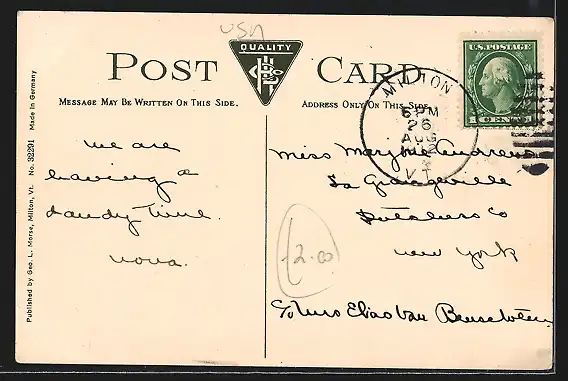 USA
QUALITY
POST CARD
MESSAGE MAY BE WRITTEN ON THIS SIDE.
ADDRESS ONLY ON THIS SIDE
U.S. POSTAGE
1 CENT 1
MILTON
6 PM
26
AUG
VT
We are
having a
dandy time.
Nova.
Miss Marjorie Andrews
La Grangeville
Dutchess Co
New York
C/o Mrs Elias Van Benschoten
12.00
Published by Geo. L. Morse, Milton, Vt. No. 32291 Made in Germany